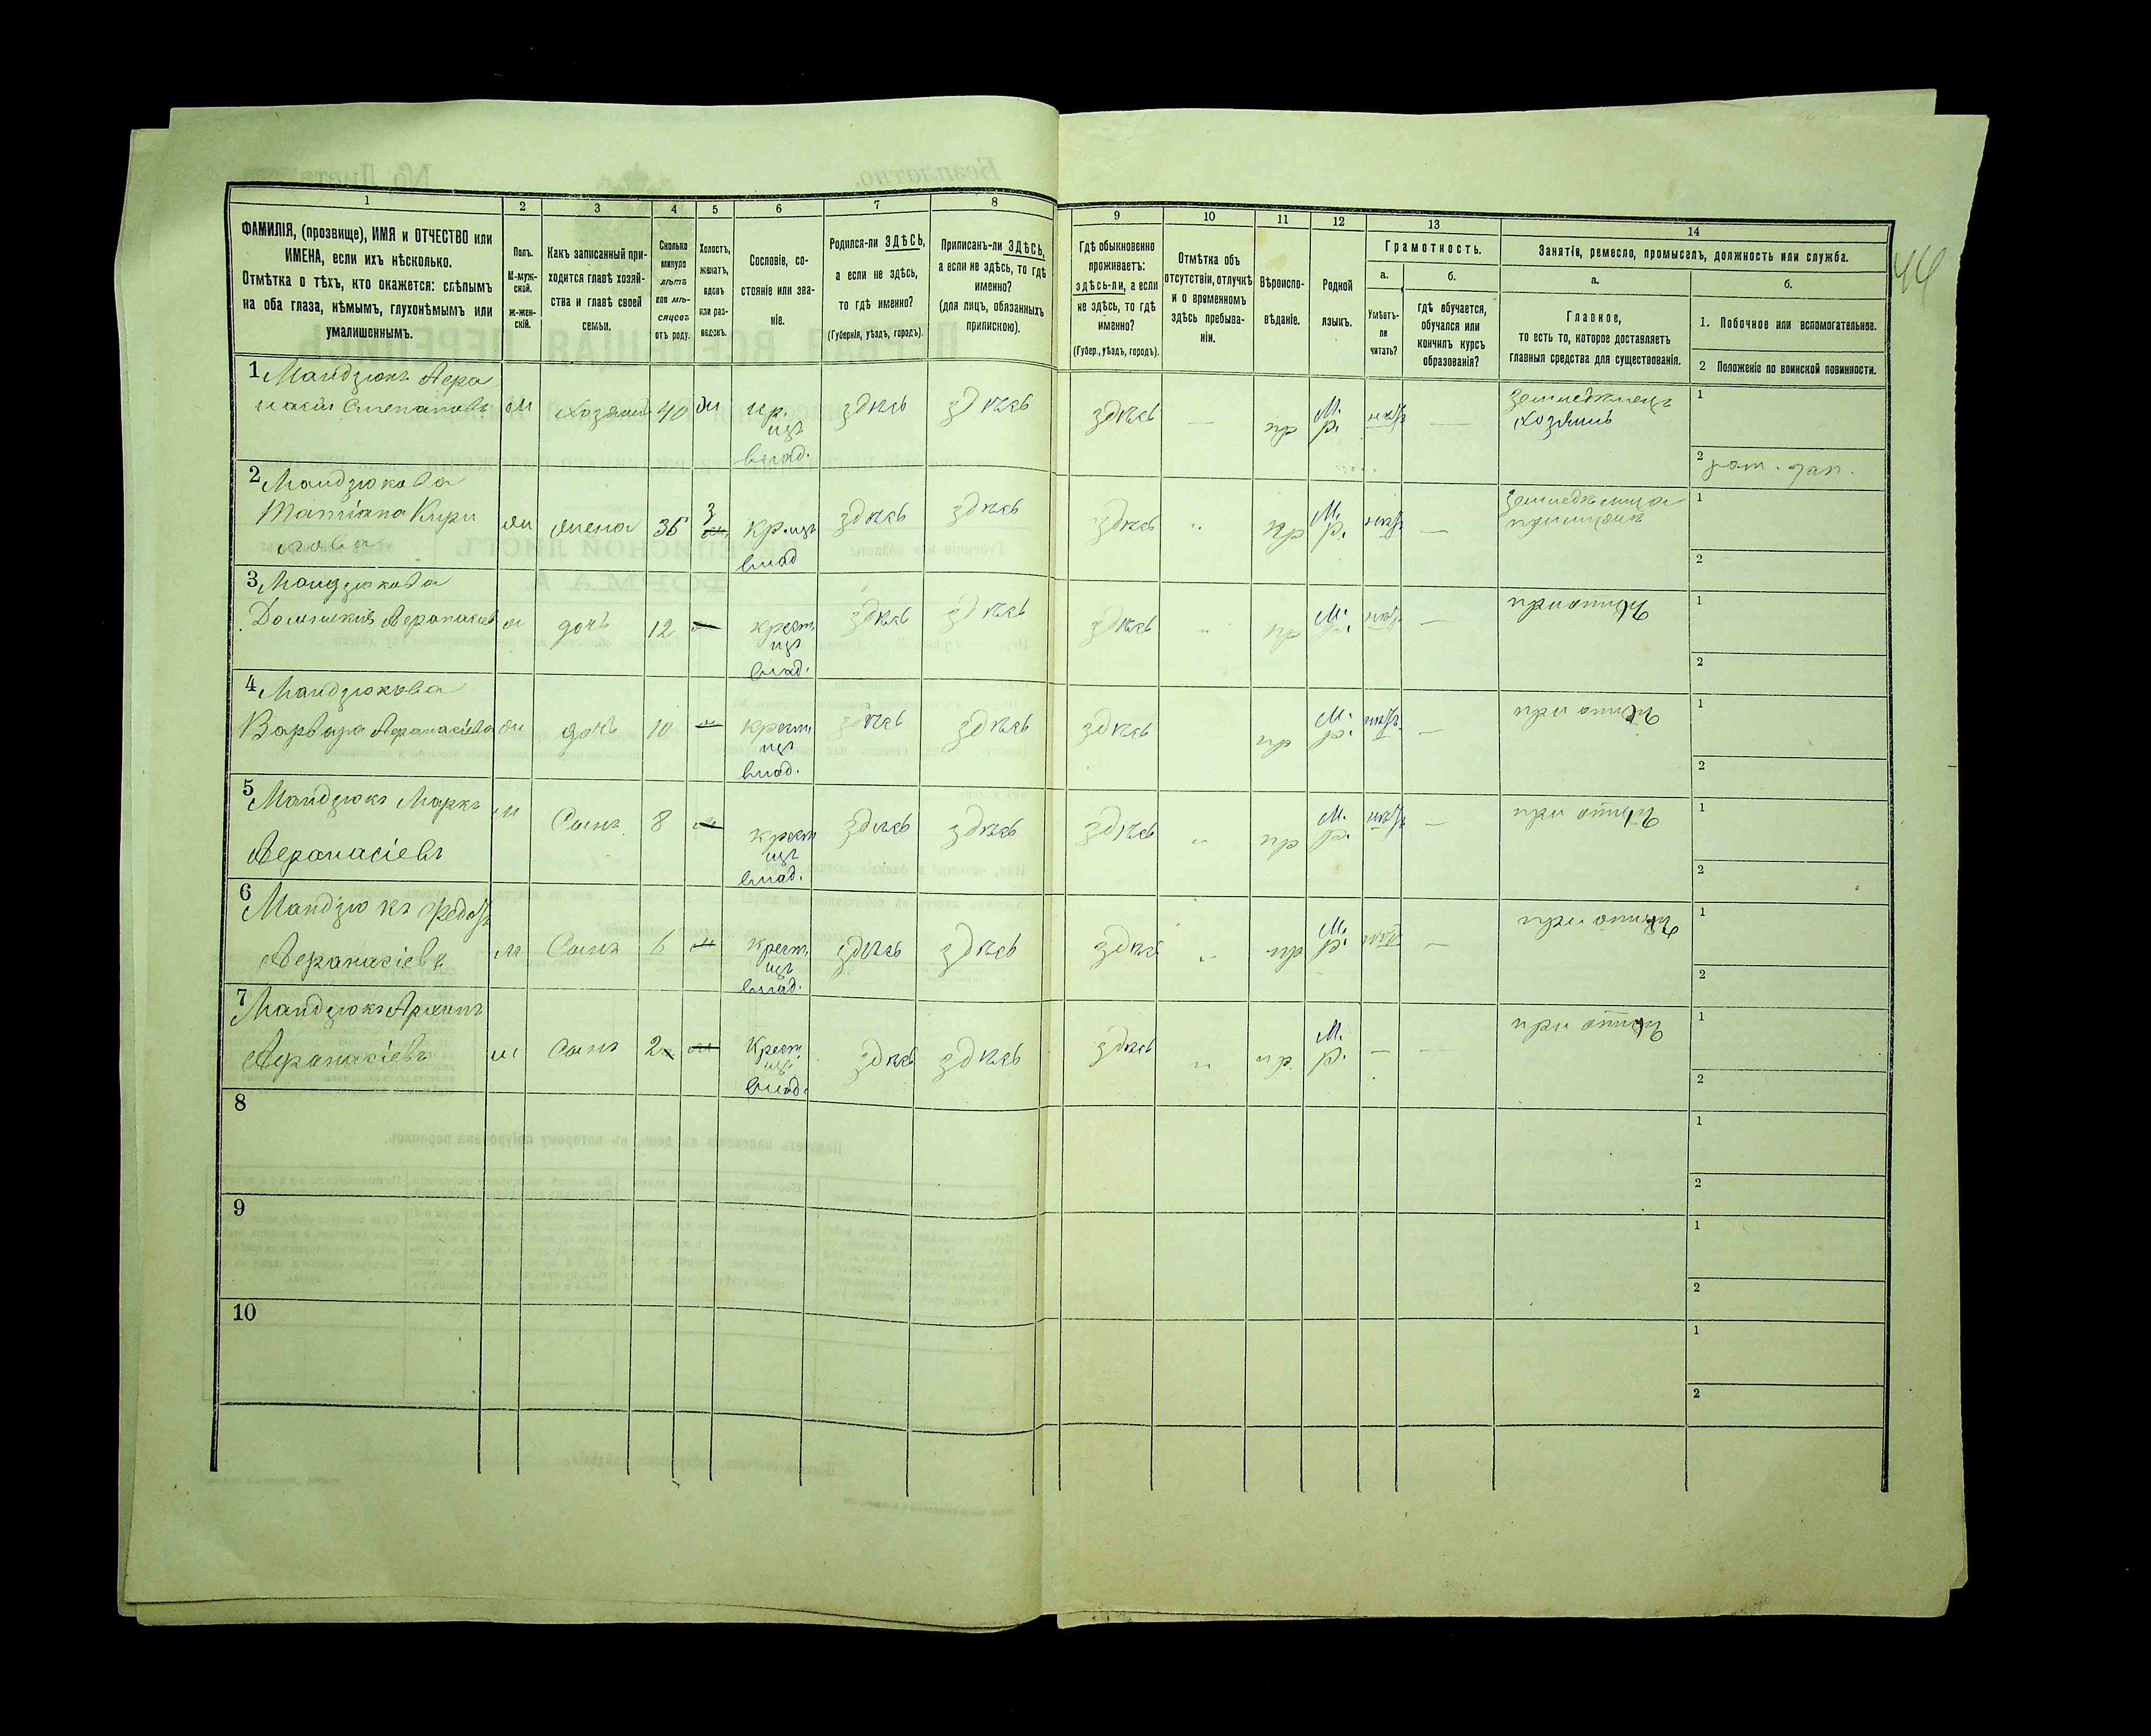 1
2
3
4
5
6
7
8
9
10
11
12
13
14
ФАМИЛІЯ, (прозвище), ИМЯ и ОТЧЕСТВО или
ИМЕНА, если ихъ нѣсколько.
Отмѣтка о тѣхъ, кто окажется: слѣпымъ
на оба глаза, нѣмымъ, глухонѣмымъ или
умалишеннымъ.
Полъ.
М-муж-
ской.
Ж-жен-
скій.
Какъ записанный при-
ходится главѣ хозяй-
ства и главѣ своей
семьи.
Сколько
минуло
лѣтъ
или мѣ-
сяцевъ
отъ роду.
Холостъ,
женатъ,
вдовъ
или раз-
веденъ.
Сословіе, со-
стояніе или зва-
ніе.
Родился-ли ЗДѢСЬ,
а если не здѣсь,
то гдѣ именно?
(Губернія, уѣздъ, городъ).
Приписанъ-ли ЗДѢСЬ,
а если не здѣсь, то гдѣ
именно?
(для лицъ, обязанныхъ
припискою).
Гдѣ обыкновенно
проживаетъ:
здѣсь-ли, а если
не здѣсь, то гдѣ
именно?
(Губер., уѣздъ, городъ).
Отмѣтка объ
отсутствіи, отлучкѣ
и о временномъ
здѣсь пребыва-
ніи.
Вѣроиспо-
вѣданіе.
Родной
языкъ.
Грамотность.
а.
Умѣетъ-
ли
читать?
б.
гдѣ обучается,
обучался или
кончилъ курсъ
образованія?
Занятіе, ремесло, промыселъ, должность или служба.
а.
Главное,
то есть то, которое доставляетъ
главныя средства для существованія.
б.
1. Побочное или вспомогательное.
2 Положеніе по воинской повинности.
1 Мандзюкъ Афа
насій Степановъ
м
Хозяинъ
40
ж
кр.
изъ
влад.
здѣсь
здѣсь
здѣсь
—
пр
М.
р.
нѣтъ
—
земледѣлецъ
хозяинъ
1
2
2 Мандзюкова
Татіана Кири
лова
ж
жена
35
з
кр. изъ
влад
здѣсь
здѣсь
здѣсь
"
пр
М.
р.
нѣтъ
—
1
2
3 Мандзюкова
ж
дочь
12
крест.
изъ
влад.
здѣсь
здѣсь
здѣсь
"
пр
М.
р.
нѣтъ
—
при отцѣ
1
2
4 Мандзюкова
Варвара Афанасіева
ж
дочь
10
крест.
изъ
влад.
здѣсь
здѣсь
здѣсь
пр
М.
р.
нѣтъ
—
при отцѣ
1
2
5 Мандзюкъ Марко
Афанасіевъ
м
Сынъ
8
крест
изъ
влад.
здѣсь
здѣсь
здѣсь
"
пр
М.
р.
нѣтъ
—
при отцѣ
1
2
6 Мандзюкъ Федоръ
Афанасіевъ
м
Сынъ
6
крест.
изъ
влад.
здѣсь
здѣсь
здѣсь
"
пр
М.
р.
нѣтъ
—
при отцѣ
1
2
7 Мандзюкъ Архипъ
Афанасіевъ
м
Сынъ
2
Крест
изъ
влад.
здѣсь
здѣсь
здѣсь
"
пр.
М.
р.
—
—
при отцѣ
1
2
8
1
2
9
1
2
10
1
2